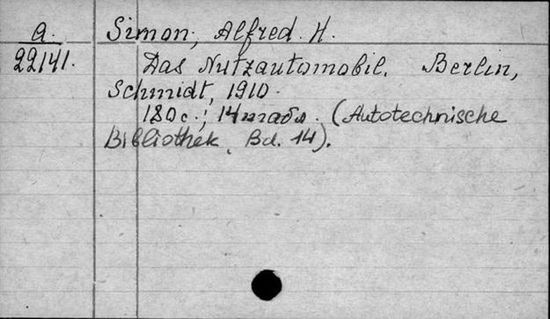 a. Simon, Alfred. H.
22141. Das Nutzautomobil. Berlin,
Schmidt, 1910.
180 c.; 14 табл. (Autotechnische
Bibliothek, Bd. 14).